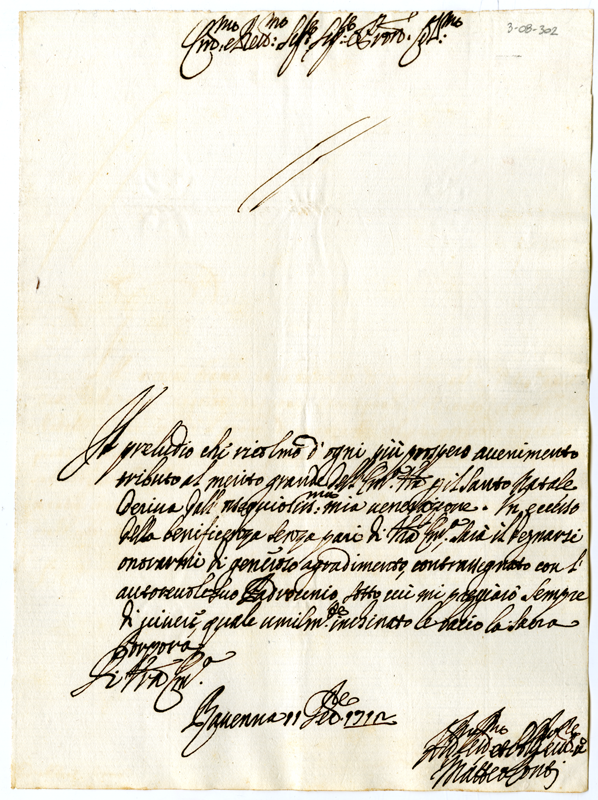 3-08-302
Em.mo e Reu.mo Sig.r Sig.r e Pron. Col.mo
Il preludio che ricolmo d'ogni più prospero auenimento
tributo al merito grande dell' Em.a V.ra p il Santo Natale
deriua dall' ossequiosiss.ma mia uenerazione. Un eccesso
della beneficenza senza pari di V.ra Em.a sarà il degnarsi
onorarmi di generoso agradimento, contrasegnato con l'
autoreuole suo Padrocinio, sotto cui mi preggiarò sempre
di uiuere, quale umilm.te inchinato le bacio la Sabra
Porpora
Di V.ra Em.a
Rauenna 11 Xbre 1712
Vmil.mo
Matteo Conti